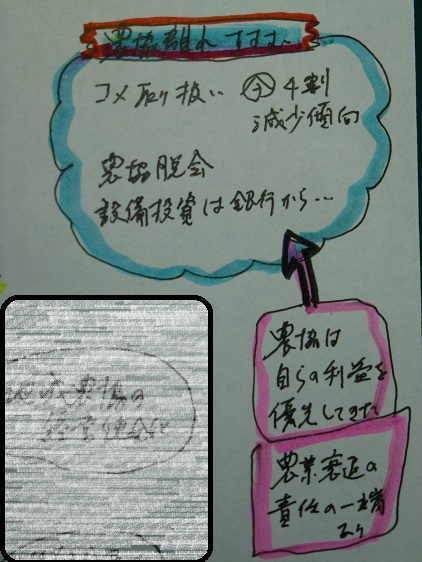 農協離れ すすむ…
コメ取り扱い 今 4割
減少傾向
農協脱会
設備投資は銀行から…
農協は
自らの利益を
優先してきた
農業衰退の
責任の一端
あり
農協の